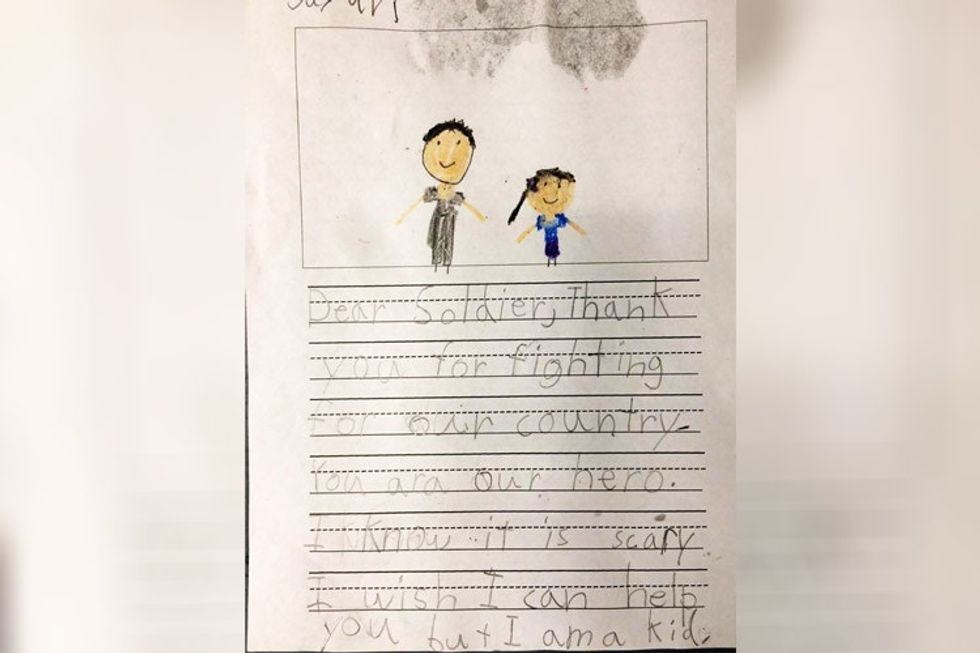 Dear Soldier, Thank
you for fighting
for our country.
You ara our hero.
I know it is scary.
I wish I can help
you but I am a kid.